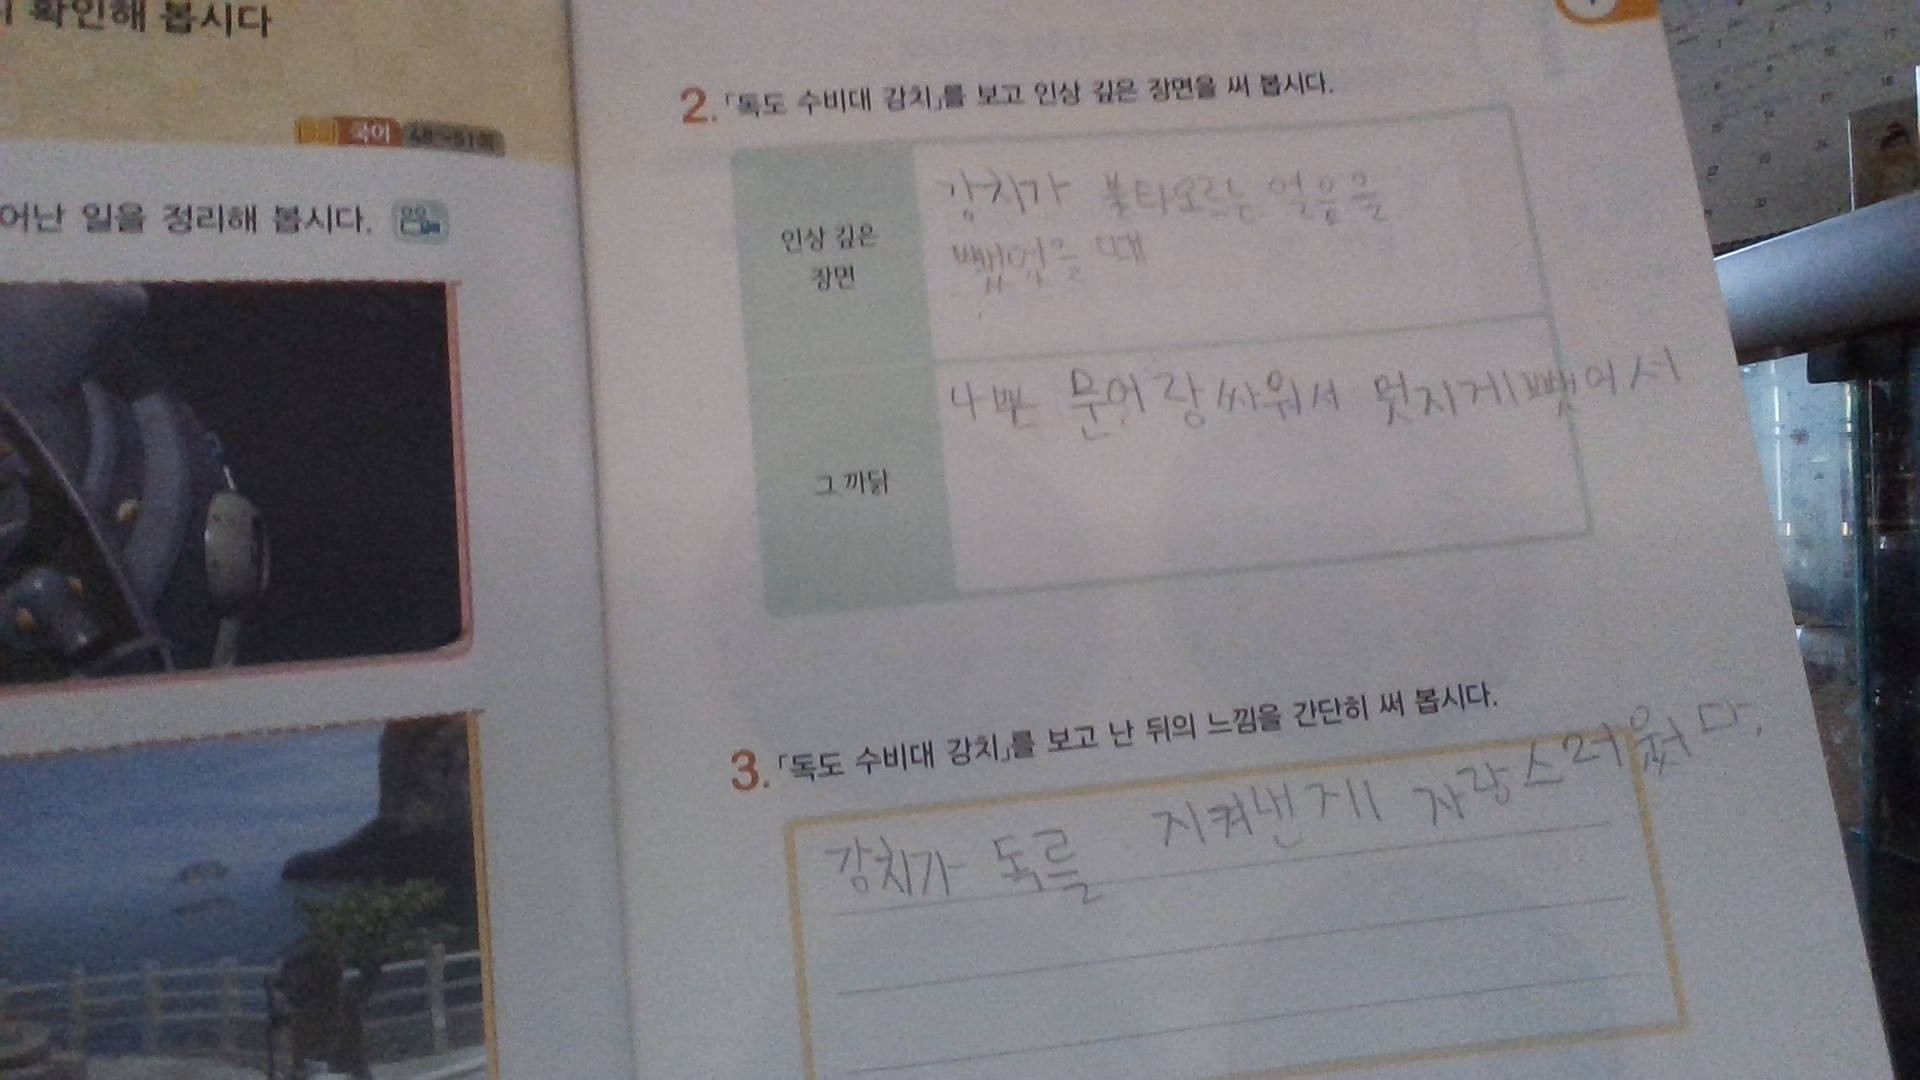 확인해 봅시다
국어
어난 일을 정리해 봅시다.
2. 「독도 수비대 강치」를 보고 인상 깊은 장면을 써 봅시다.
인상 깊은
장면
강치가 불타오르는 얼음을
뺐었을 때
그 까닭
나쁜 문어랑 싸워서 멋지게 뺐어서
3. 「독도 수비대 강치」를 보고 난 뒤의 느낌을 간단히 써 봅시다.
강치가 독르를 지켜낸게 자랑스러웠다.